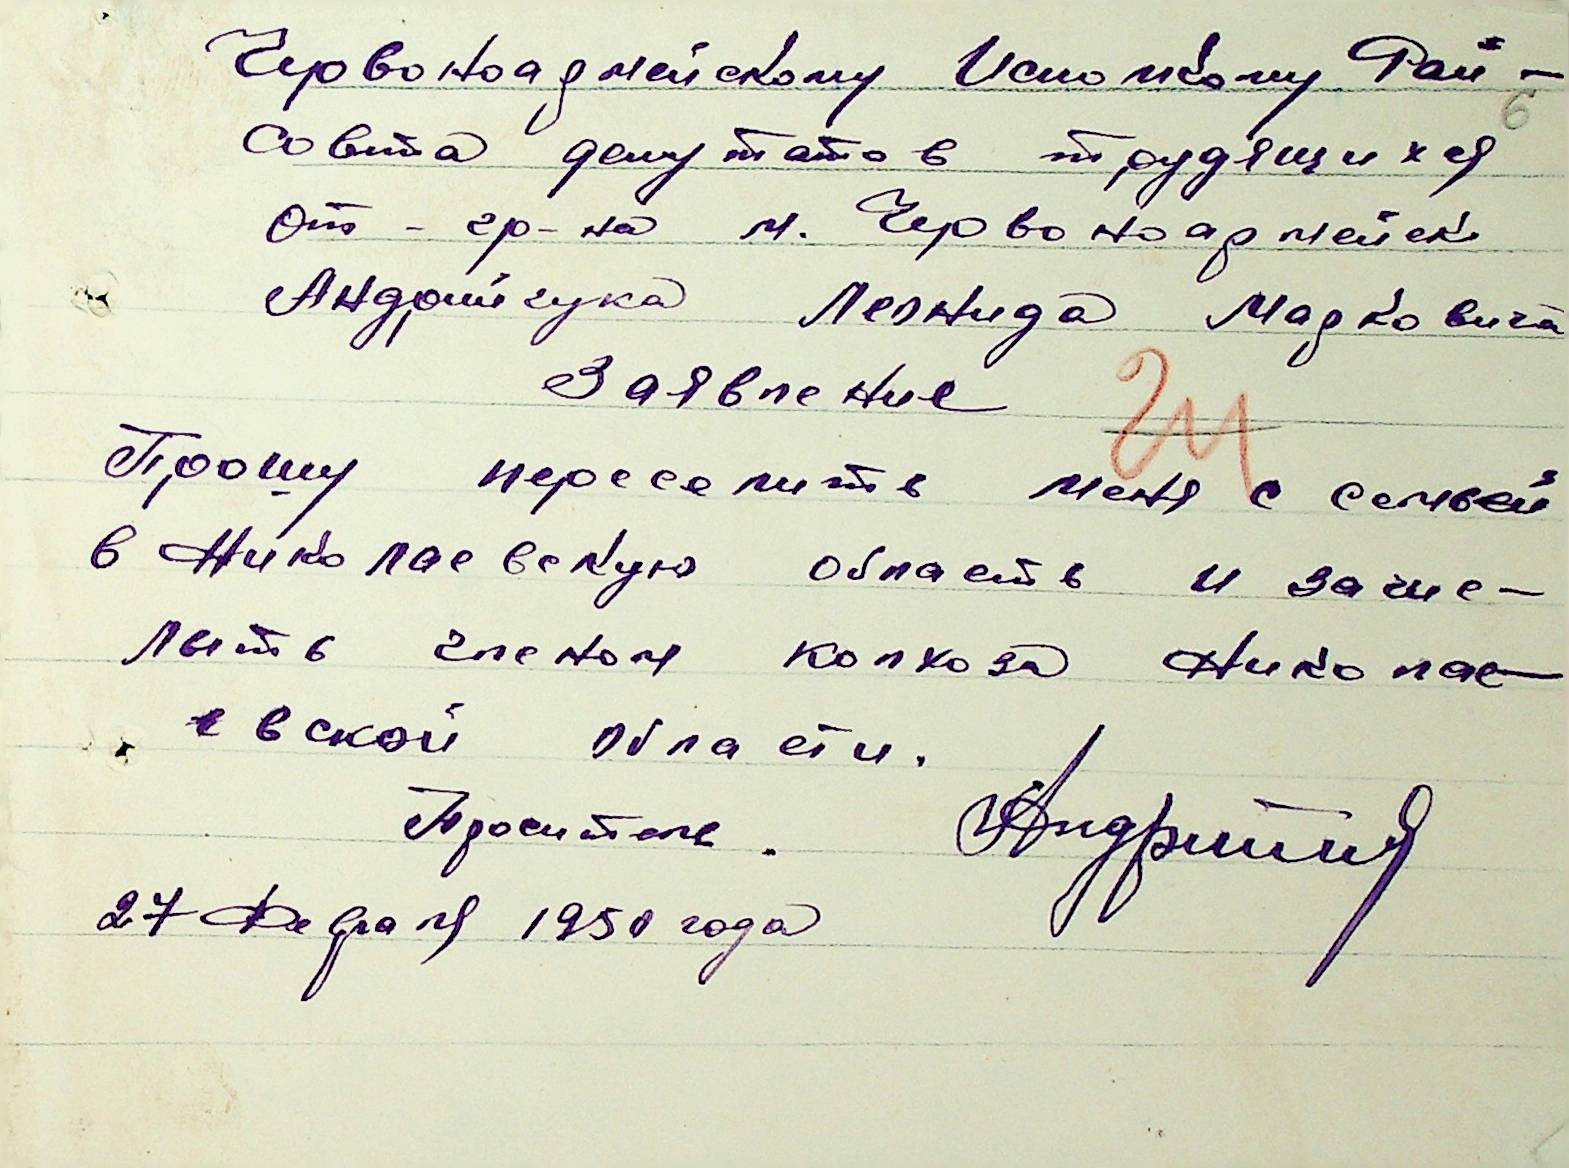 Червоноармейскому Исполкому Рай-
6
совета депутатов трудящихся
От - гр-на м. Червоноармейск
Андрийчука Леонида Марковича
Заявление
Прошу переселить меня с семьей
в Николаевскую область и зачис-
лыть членом колхоза Николае-
евской области.
Проситель.
27 Февраля 1950 года